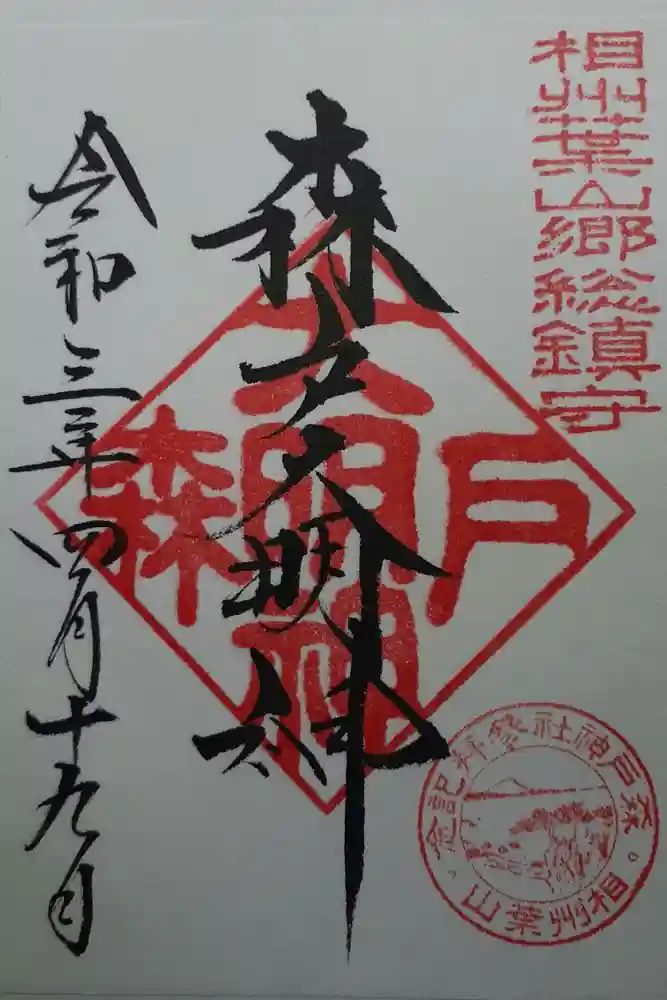 相州葉山郷総鎮守
森戸大明神
令和三年四月十九日
森戸大明神
森戸神社参拝記念
相州葉山